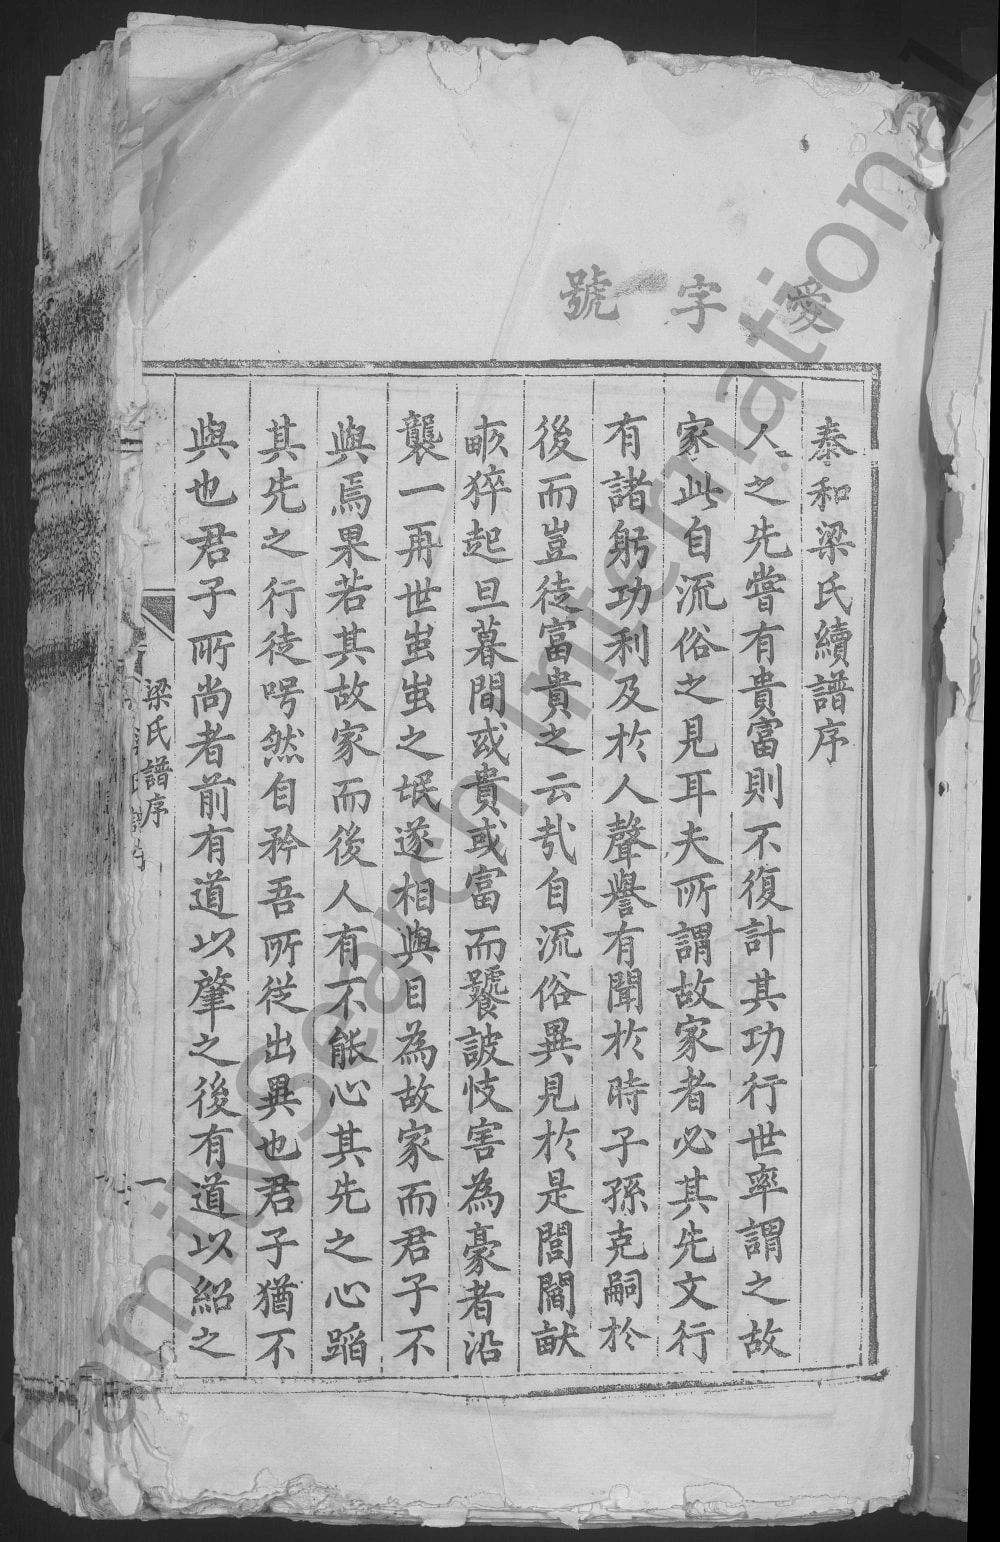 愛字號
泰和梁氏續譜序
人之先嘗有貴富則不復計其功行世率謂之故
家此自流俗之見耳夫所謂故家者必其先文行
有諸躬功利及於人聲譽有聞於時子孫克嗣於
後而豈徒富貴之云㢤自流俗異見於是閭閻畎
畝猝起旦暮間或貴或富而饕詖忮害為豪者沿
襲一再世蚩蚩之氓遂相與目為故家而君子不
與焉果若其故家而後人有不能心其先之心蹈
其先之行徒咢然自矜吾所從出異也君子猶不
與也君子所尚者前有道以肇之後有道以紹之
梁氏譜序
一
FamilySearch International